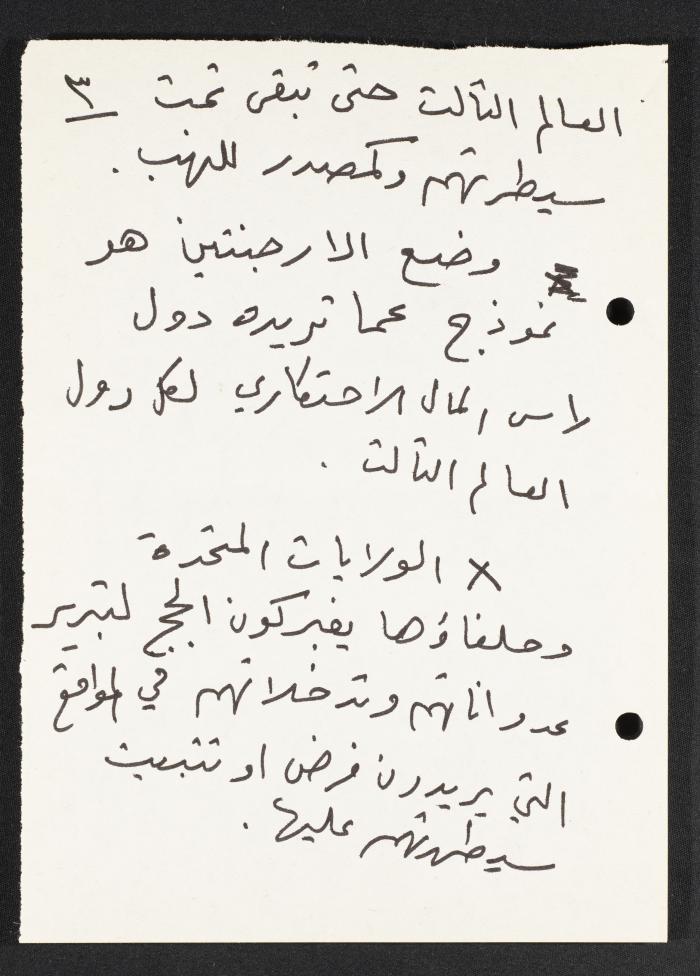 ٣
العالم الثالث حتى تبقى تحت
سيطرتهم وكمصدر للنهب .
وضع الارجنتين هو
نموذج عما تريده دول
راس المال الاحتكاري لكل دول
العالم الثالث .
x الولايات المتحدة
وحلفاؤها يفبركون الحجج لتبرير
عدواناتهم وتدخلاتهم في المواقع
التي يريدون فرض او تثبيت
سيطرتهم عليها .